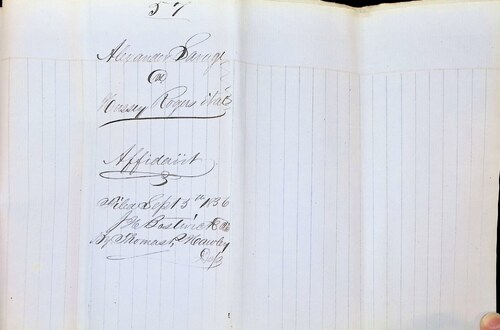 57
Alexander
vs
Hussey Rogers et al
Affidavit
Filed Sept 15th 1836
Bostwick Clk
By Thomas Hawley
Dep